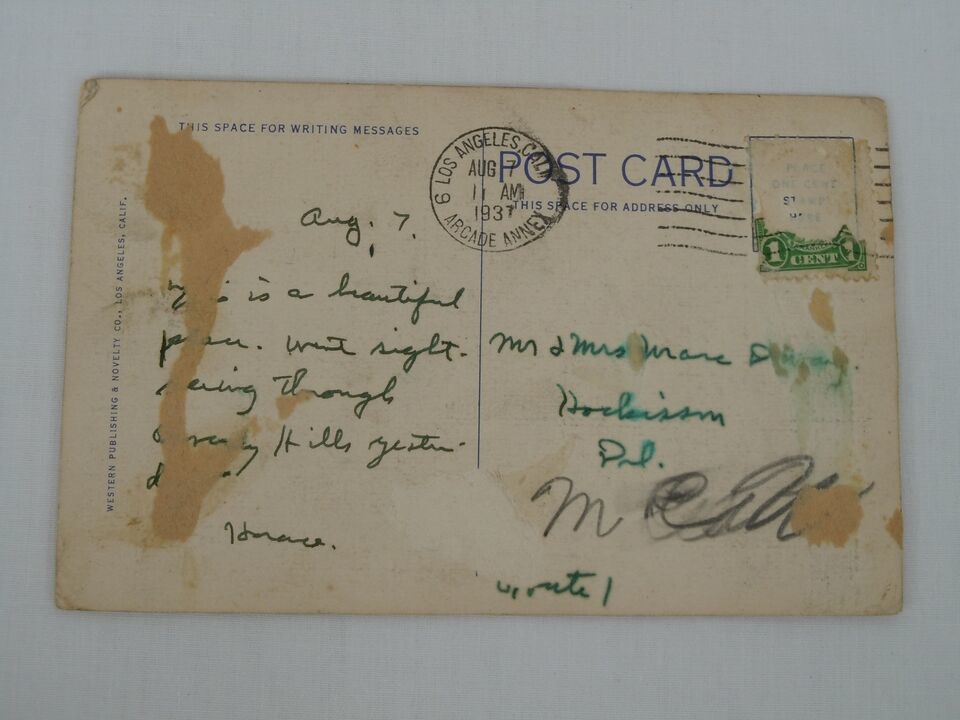 THIS SPACE FOR WRITING MESSAGES
POST CARD
THIS SPACE FOR ADDRESS ONLY
LOS ANGELES, CALIF.
AUG 7
11 AM
1937
6 ARCADE ANNEX
PLACE
ONE CENT
STAMP
HERE
1 CENT 1
WESTERN PUBLISHING & NOVELTY CO., LOS ANGELES, CALIF.
Aug. 7.
is a beautiful
place. went sight-
seeing through
Beverly Hills yester-
day.
Horace.
Mr & Mrs Marc
Hockissen
Del.
route 1